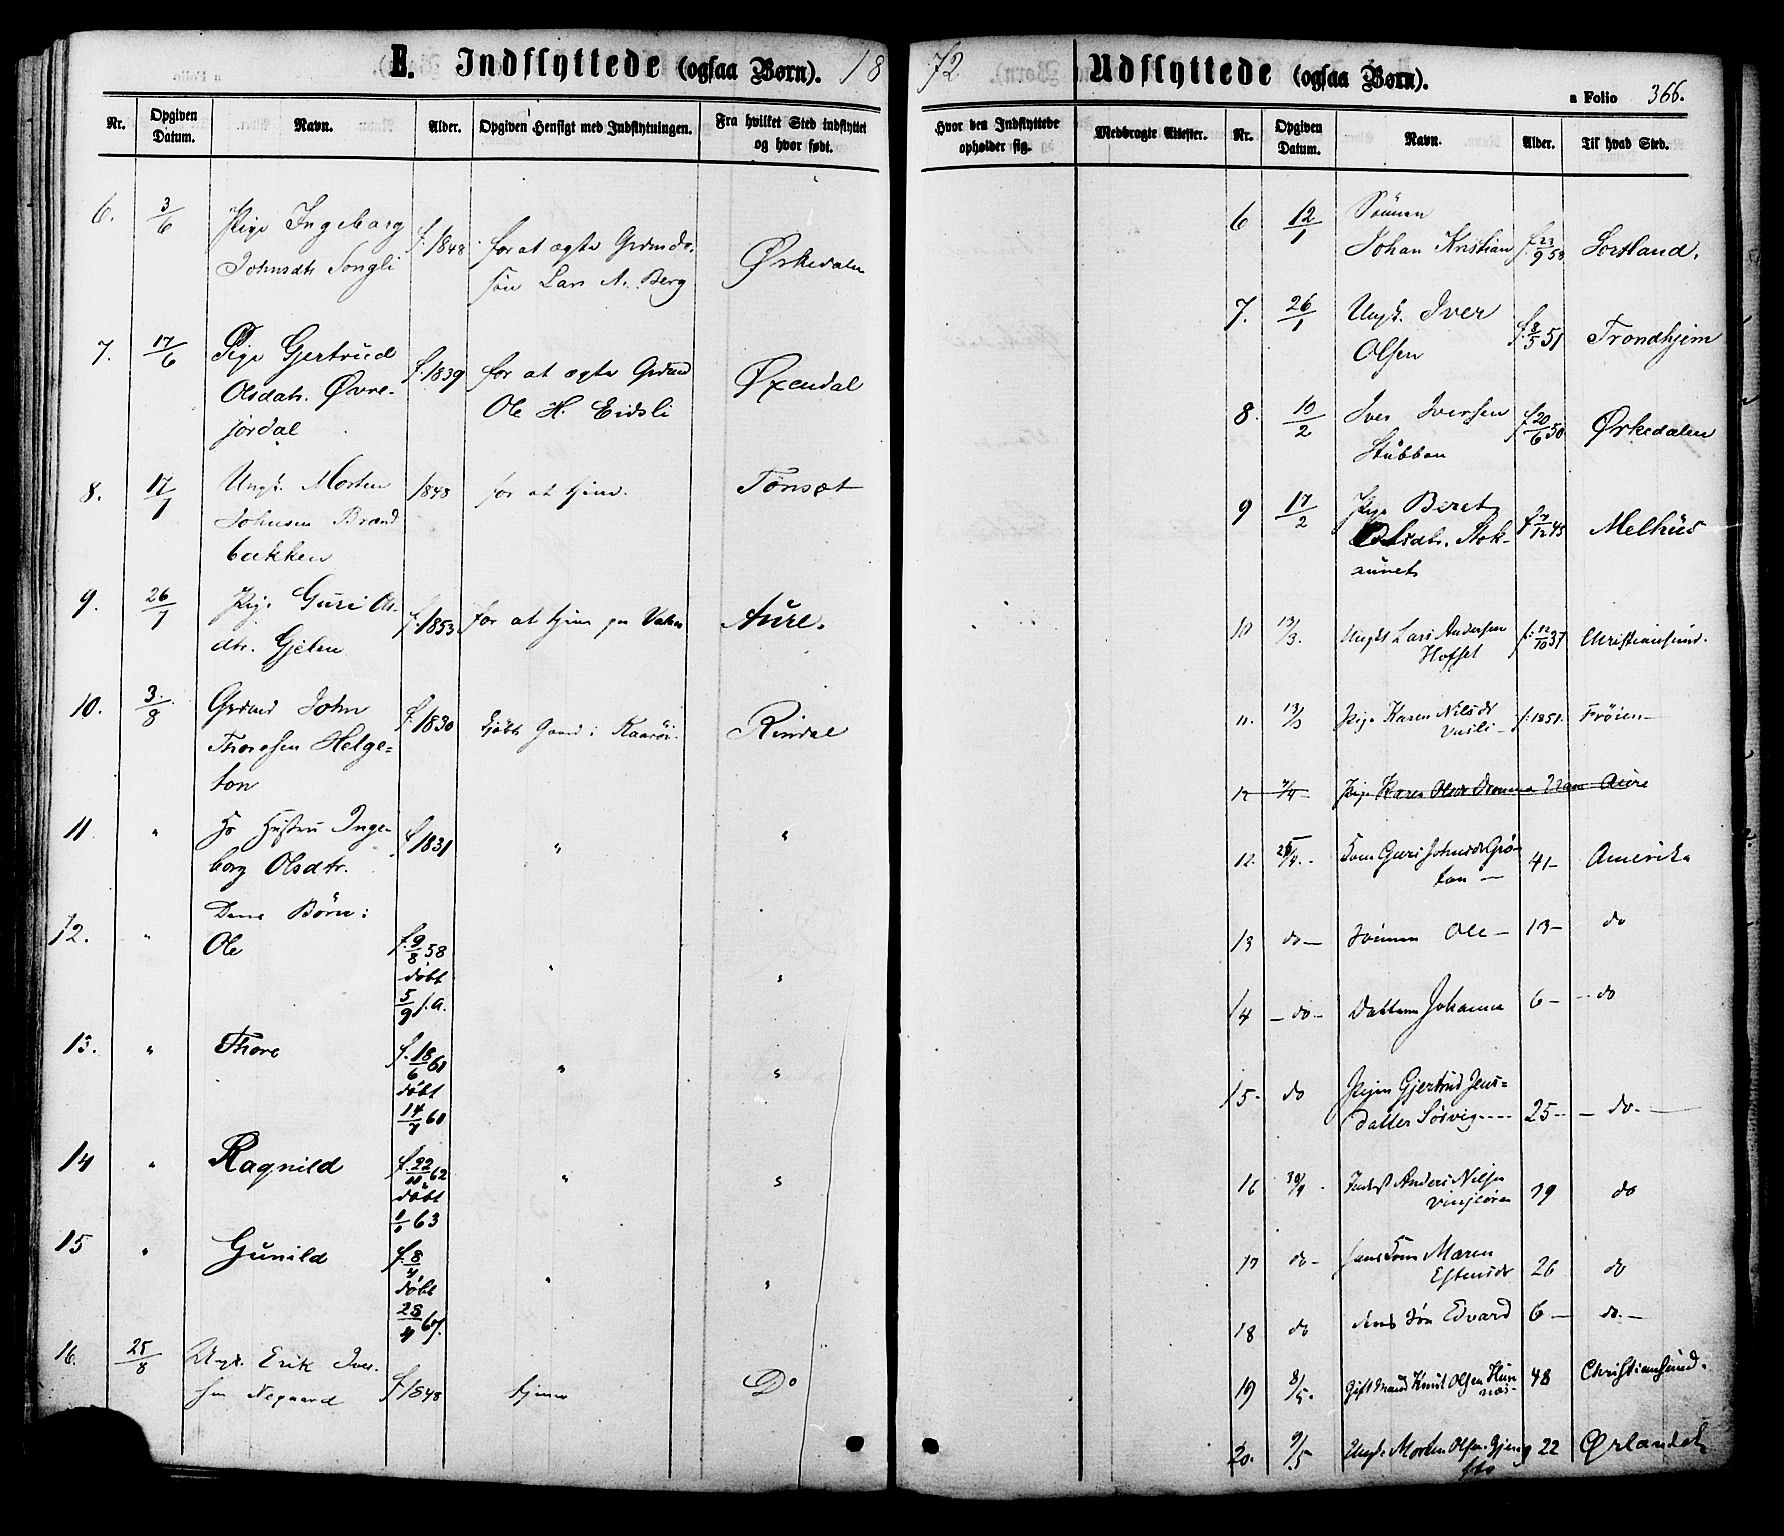 E. Indflyttede (ogsaa Børn). 18
Nr. Opgiven Datum. Navn. Alder. Opgiven Hensigt med Indflytningen. Fra hvilket Sted indflyttet og hvor født.
6. 3/6 Pige Ingeborg f. 1848 for at ægte Grmds.
Johnsdtr Songli søn Lars A. Berg Ørkedalen
7. 17/6 Pige Gjertrud f. 1839 for at ægte Grdmd Øxendal
Olsdatr. Øvre- Ole H. Eidsli
jordal
8. 17/7 Ungk. Morten 1848 for at tjene. Tønset
Johnsen Brænd
bækken
9. 26/7 Pige Guri Ols- f. 1853 for at tjene paa Aure.
dtr. Gjelen
10. 3/8 Grdmd John f. 1830 kjøbt Gaard i Rindal
Thoresen Helge-
ton
11. " Hs Hustru Inge- f. 1831 " "
borg Olsdtr.
Deres Børn:
12. " Ole f. 9/8 58 " "
døbt
5/9 s. A.
13. " Thore f. 18/6 60 " "
døbt
14/7 60
14 " Ragnild f. 22/11 62 " "
døbt
1/1 63
15 " Gunild f. 8/4 " "
døbt
28/4 67.
16. 25/8 Ungk. Erik Iver- f. 1848 tjene Do
sen Negaard
72 Udflyttede (ogsaa Børn).
a Folio 366.
Hvor den Indflyttede opholder sig. Medbragte Attester. Nr. Opgiven Datum. Navn. Alder. Til hvad Sted.
6 12/1 Sønnen
Johan Kristian f. 23/9 58 Sortland.
7. 26/1 Ungk. Iver f. 8/5 51 Trondhjem
Olsen
8. 10/2 Iver Iversen f. 20/6 50 Ørkedalen
Stubban
9 17/2 Pige Beret f. 7/12 45 Melhus
Olsdtr. Stok-
10 13/3. Ungk Lars Andersen f. 12/10 37 Christiansund.
Hofset
11. 13/3 Pige Karen Nilsdr f. 1851. Frøien
12 7/4 Pige Karen Olsdr Aure
12. 25/4. Guri Johnsdr Grø- 41 Amerika
ten
13 do Sønnen Ole 13 do
14 do Datteren Johanna 6 do
15. do Pigen Gjertrud Jens= 25 do.
datter Søsvig
16 30/4 Anders Nilsen 29 do
17 do hans Kone Maren 26 do
Estensdr
18 do deres Søn Edvard 6 do.
19 8/5. Gift Mand Knut Olsen Hun 48 Christiansund.
næs
20. 9/5 Ungk. Morten Olsen Gjeng 22 Ørlandet
sto